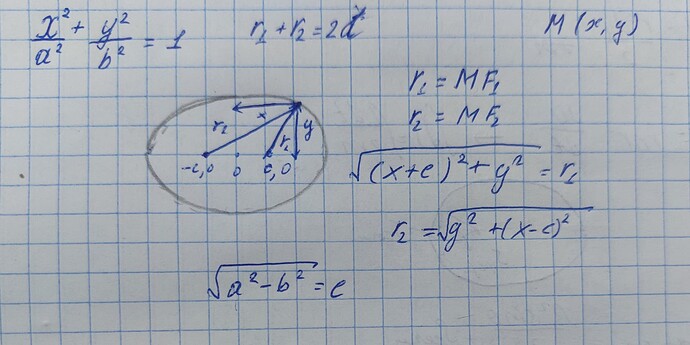 x²/a² + y²/b² = 1
r₁ + r₂ = 2a
M(x, y)
r₁ = MF₁
r₂ = MF₂
x
y
r₂
r₁
-c,0
0
c,0
√((x+c)² + y²) = r₁
r₂ = √(y² + (x-c)²)
√(a² - b²) = c